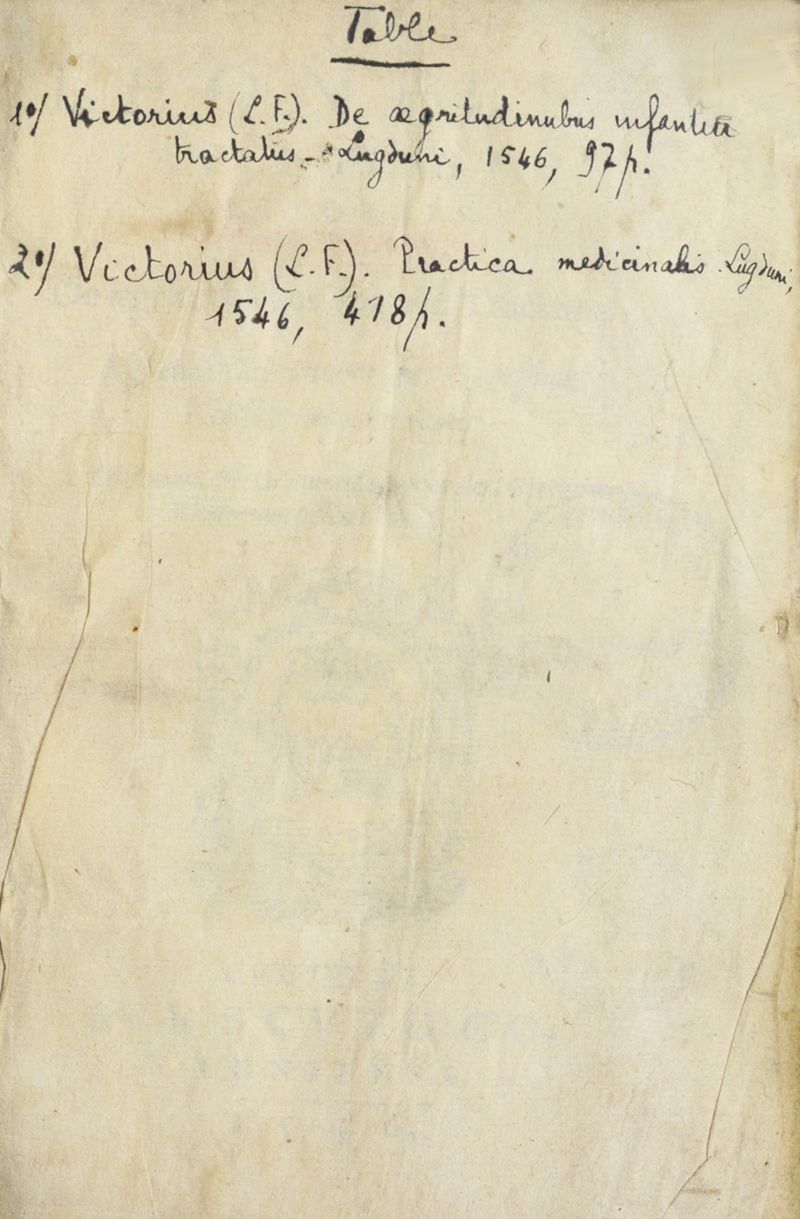 Table
1°/ Victorius (L. F.). De ægritudinubus infantiu
tractatus. - Lugduni, 1546, 97 p.
2°/ Victorius (L. F.). Practica medicinalis. Lugduni,
1546, 418 p.